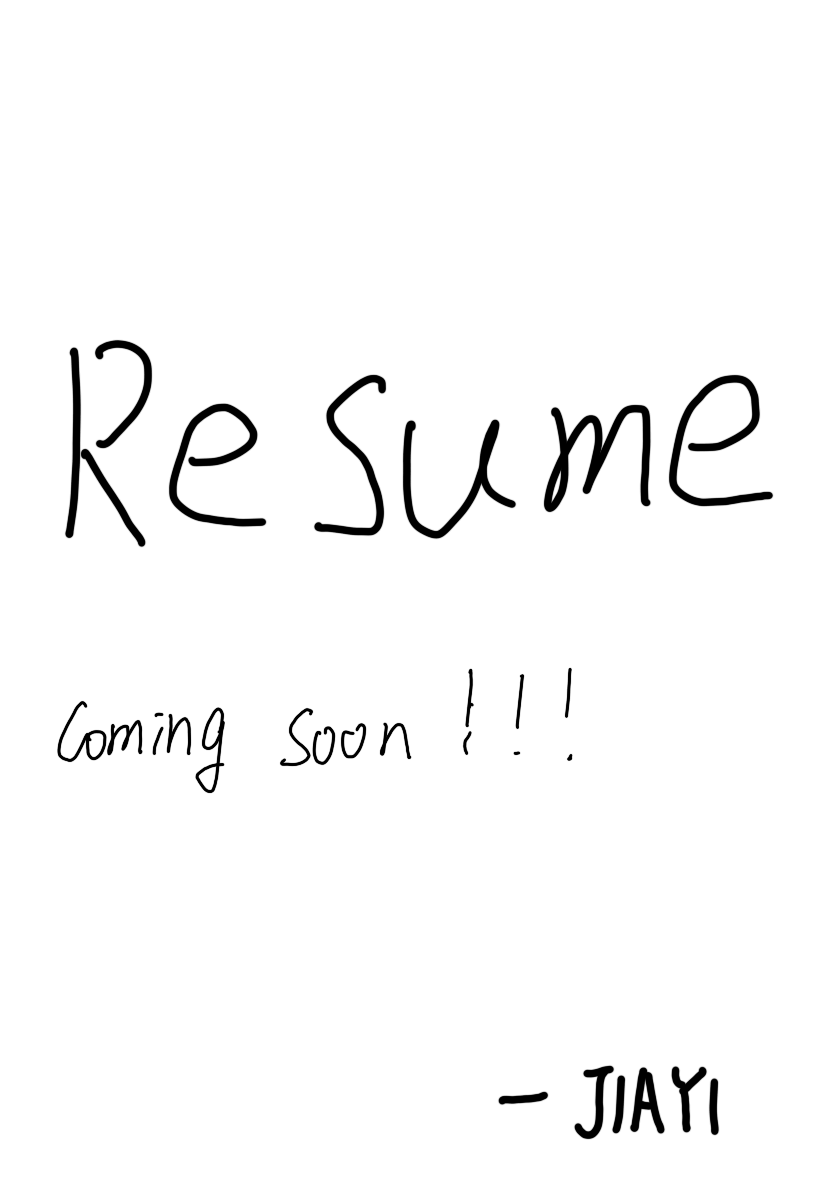 Resume
Coming soon !!!
- JIAYI